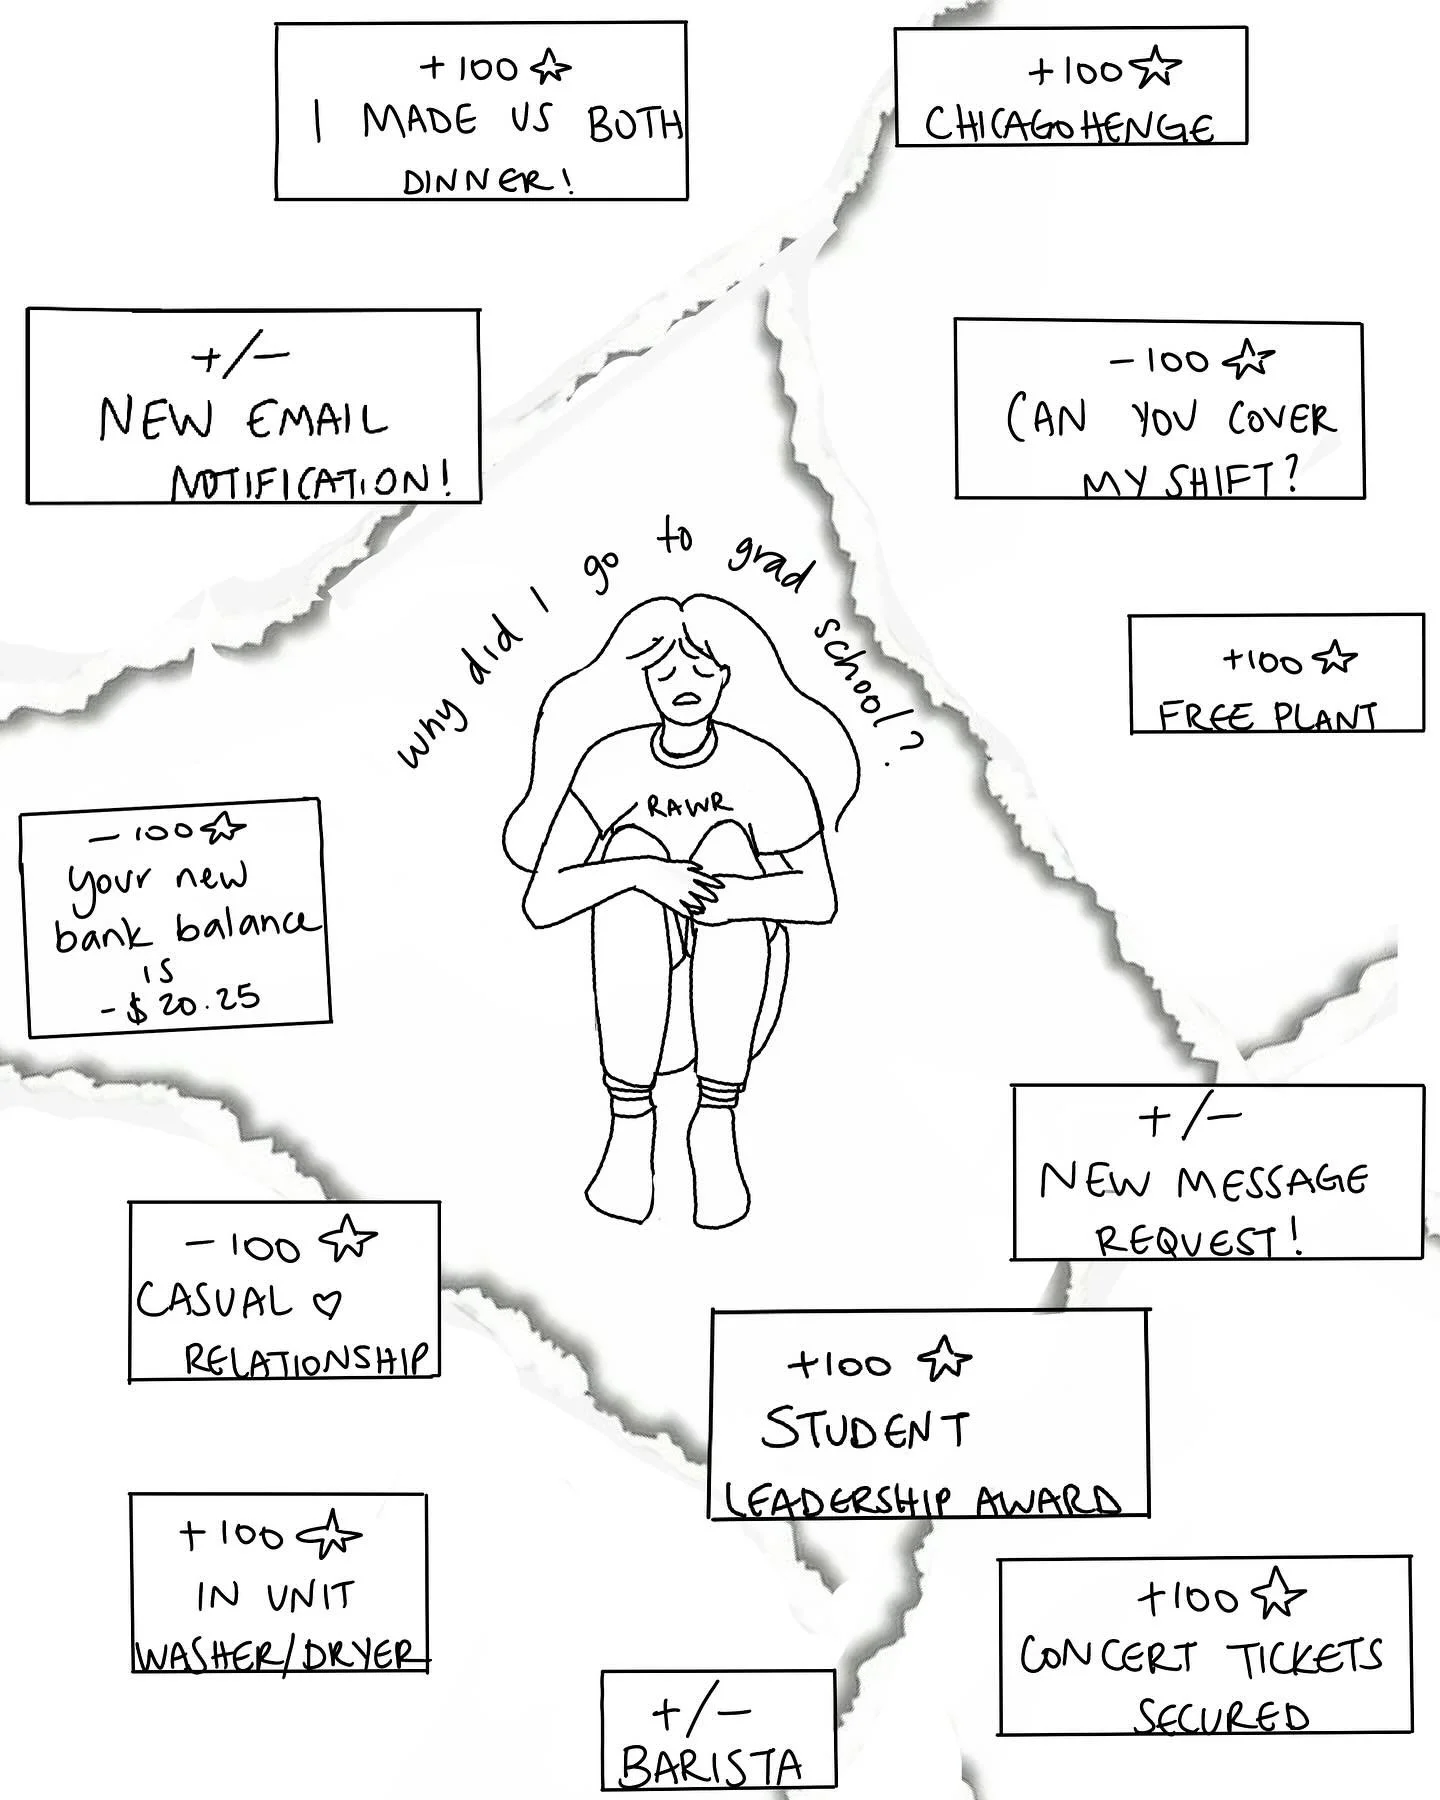 +100 ☆
I MADE US BOTH
DINNER!
+100 ☆
CHICAGOHENGE
+/-
NEW EMAIL
NOTIFICATION!
-100 ☆
CAN YOU COVER
MY SHIFT?
why did I go to grad school?
+100 ☆
FREE PLANT
RAWR
-100 ☆
your new
bank balance
is
-$20.25
+/-
NEW MESSAGE
REQUEST!
-100 ☆
CASUAL ♡
RELATIONSHIP
+100 ☆
STUDENT
LEADERSHIP AWARD
+100 ☆
IN UNIT
WASHER/DRYER
+100 ☆
CONCERT TICKETS
SECURED
+/-
BARISTA